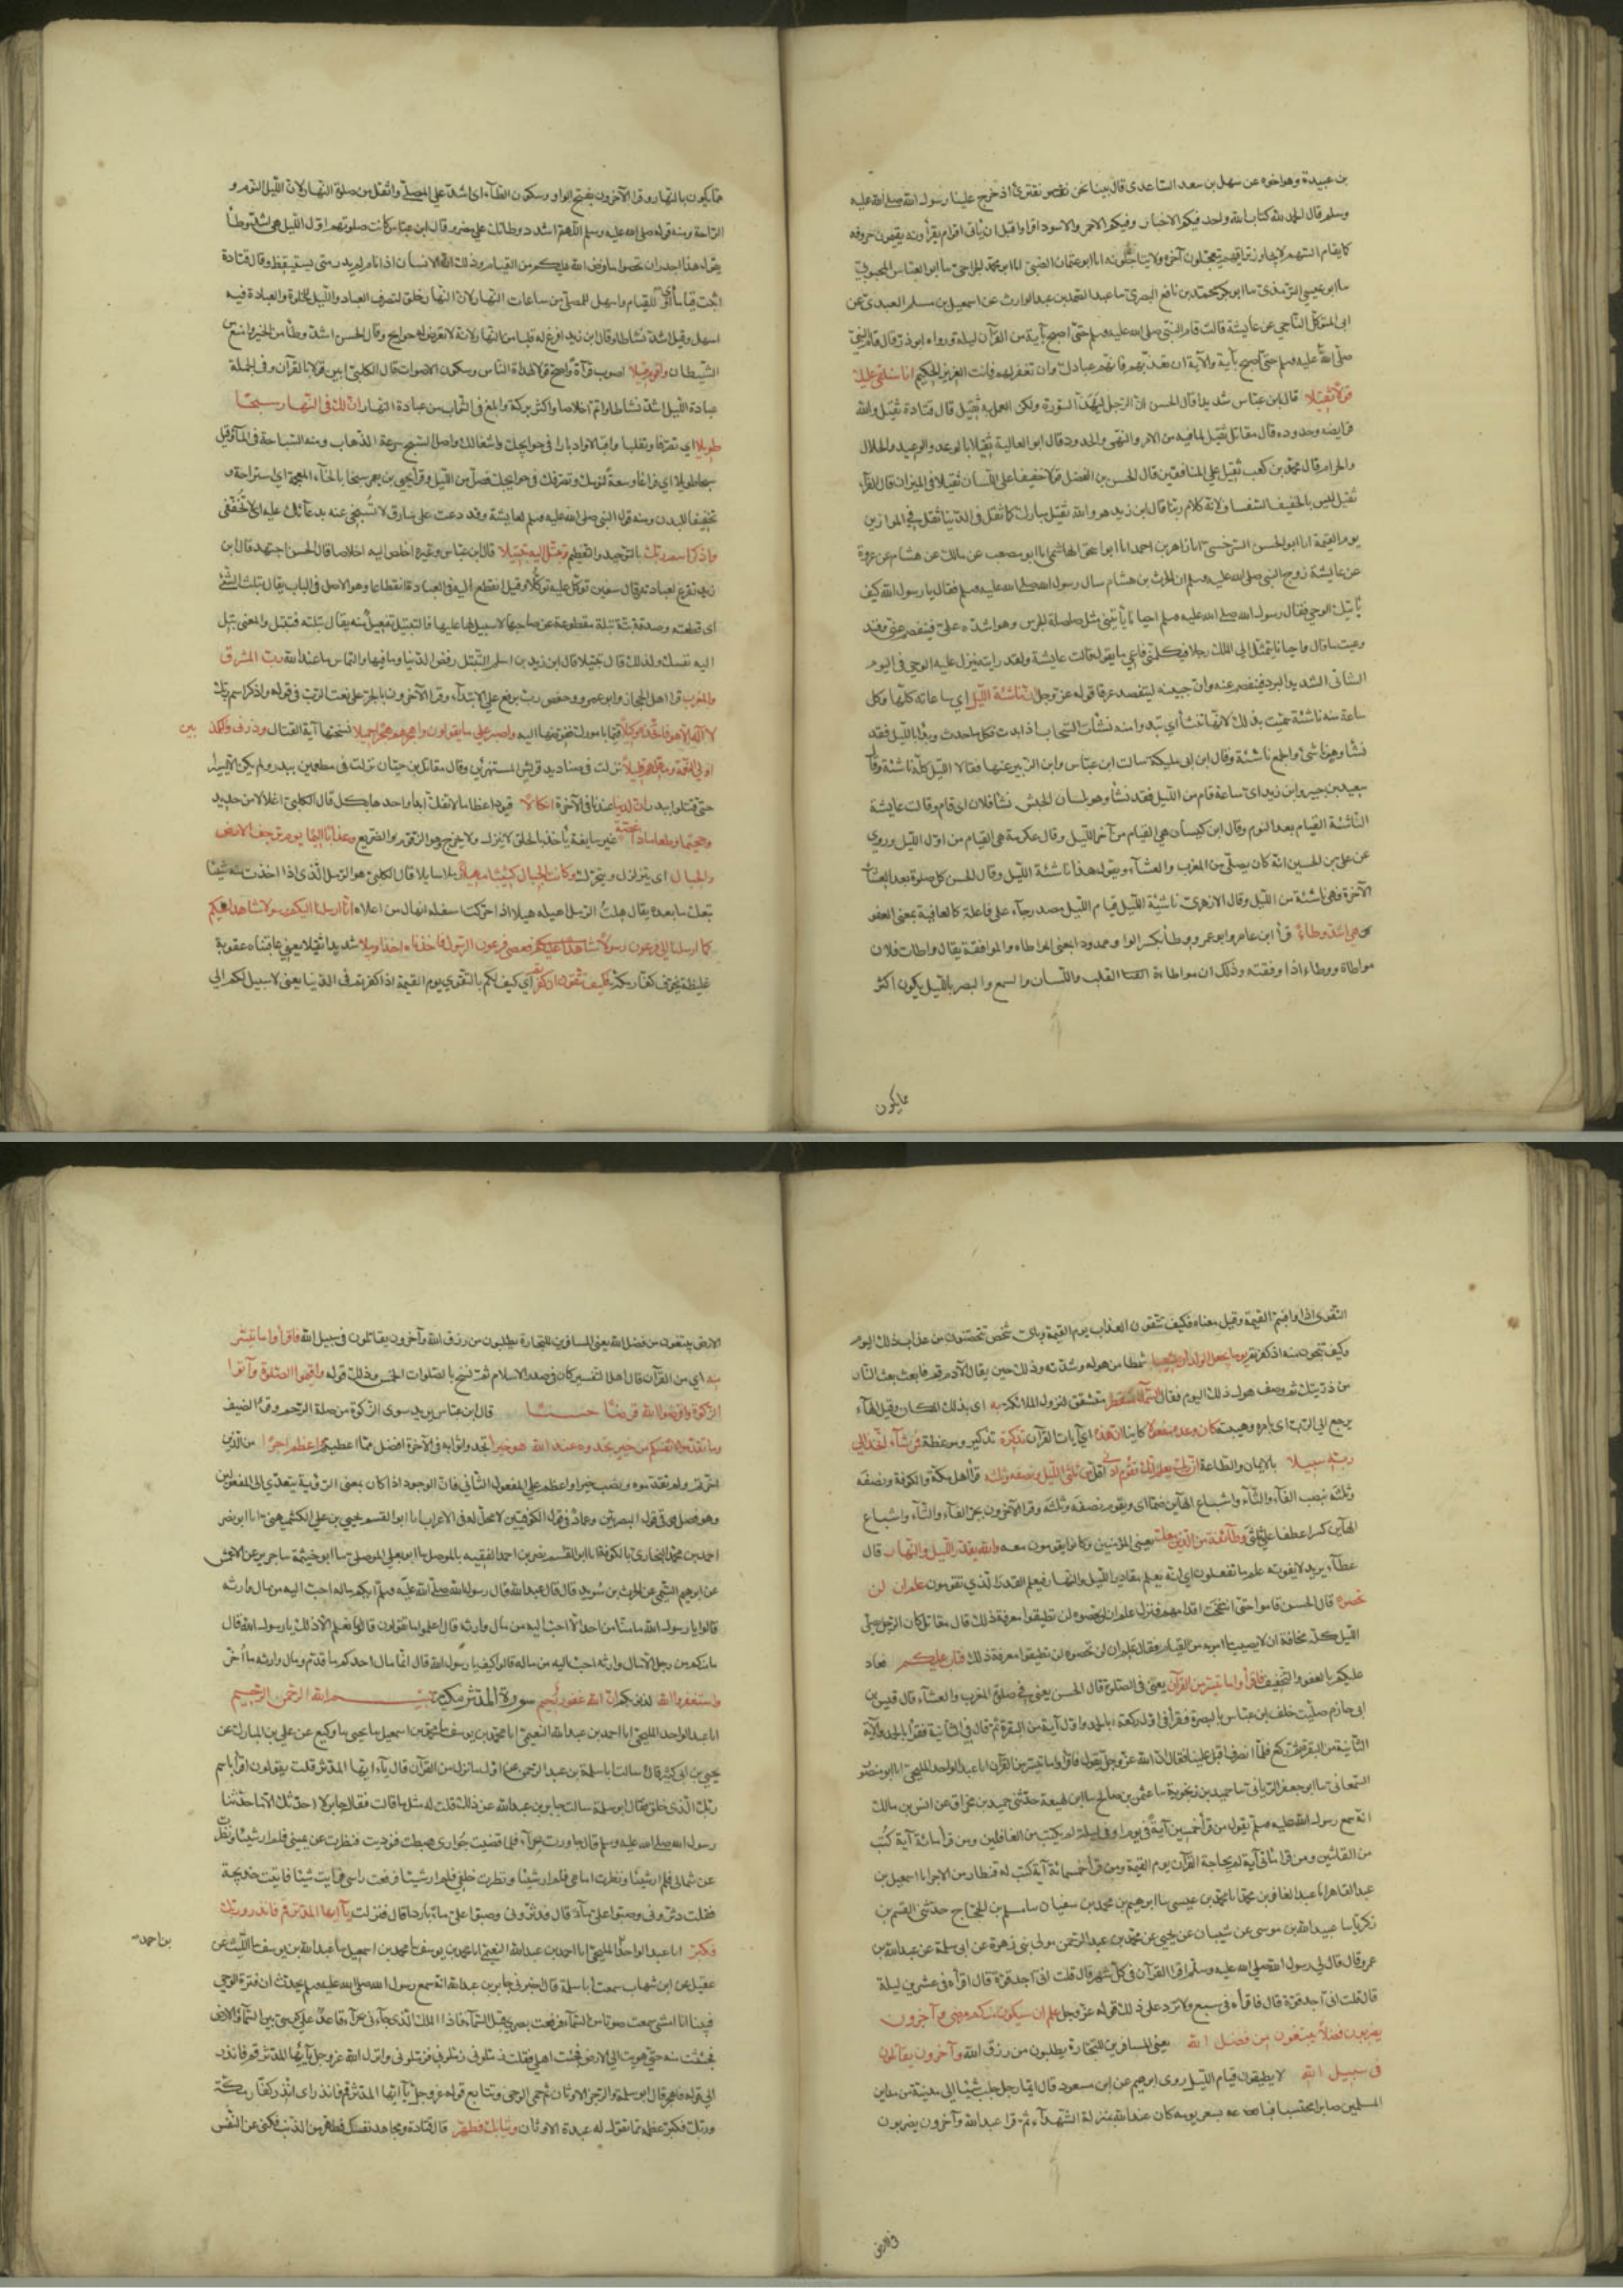 بن عبيدة وهو اخوه عن سهل بن سعد الساعدى قال بينا نحن نقترئ اذ خرج علينا رسول الله صلى الله عليه
وسلم قال الحمد لله كتاب الله واحد وفيكم الاخيار وفيكم الاحمر والاسود اقرأوا قبل ان يأتى اقوام يقرأونه يقيمون حروفه
كما يقام السهم لا يجاوز تراقيهم يتعجلون آخره ولا يتأجلونه انا ابو عثمان الضبى انا ابو محمد الجراحى نا ابو العباس المحبوبى
نا ابو عيسى الترمذى نا ابو بكر محمد بن نافع البصرى نا عبد الصمد بن عبد الوارث عن اسمعيل بن مسلم العبدى عن
ابى المتوكل الناجى عن عايشة قالت قام النبى صلى الله عليه وسلم حتى اصبح بآية من القرآن ليلة ورواه ابو ذر قال قام النبى
صلى الله عليه وسلم حتى اصبح بآية والآية ان تعذبهم فانهم عبادك وان تغفر لهم فانك انت العزيز الحكيم انا سنلقى عليك
قولا ثقيلا قال ابن عباس شديدا قال الحسن ان الرجل ليهذ السورة ولكن العمل به ثقيل قال قتادة ثقيل والله
فرايضه وحدوده قال مقاتل ثقيل لما فيه من الامر والنهى والحدود قال ابو العالية ثقيلا بالوعد والوعيد والحلال
والحرام قال محمد بن كعب ثقيل على المنافقين قال الحسن بن الفضل قولا خفيفا على اللسان ثقيلا فى الميزان قال الفراء
ثقيل ليس بالخفيف السفساف لانه كلام ربنا قال ابن زيد هو والله ثقيل مبارك كما ثقل فى الدنيا ثقل فى الموازين
يوم القيمة انا ابو الحسن السرخسى انا زاهر بن احمد انا ابو اسحق الهاشمى انا ابو مصعب عن مالك عن هشام بن عروة
عن عايشة زوج النبى صلى الله عليه وسلم ان الحرث بن هشام سال رسول الله صلى الله عليه وسلم فقال يا رسول الله كيف
يأتيك الوحى فقال رسول الله صلى الله عليه وسلم احيانا يأتينى مثل صلصلة الجرس وهو اشده على فيفصم عنى وقد
وعيت ما قال واحيانا يتمثل الى الملك رجلا فيكلمنى فاعى ما يقول قالت عايشة ولقد رايته ينزل عليه الوحى فى اليوم
الشاتى الشديد البرد فيفصم عنه وان جبينه ليتفصد عرقا قوله عز وجل ان ناشئة الليل اى ساعاته كلها وكل
ساعة منه ناشئة سميت بذلك لانها تنشأ اى تبدو ومنه نشأت السحاب اذا بدت فكل ما حدث وبدا بالليل فقد
نشأ وهو ناشئ والجمع ناشئة وقال ابن ابى مليكة سالت ابن عباس وابن الزبير عنها فقالا الليل كله ناشئة وقال
سعيد بن جبير وابن زيد اى ساعة قام من الليل فقد نشأ وهو بلسان الحبش نشأ فلان اى قام وقالت عايشة
الناشئة القيام بعد النوم وقال ابن كيسان هى القيام من آخر الليل وقال عكرمة هى القيام من اول الليل وروى
عن على بن الحسين انه كان يصلى بين المغرب والعشاء ويقول هذا ناشئة الليل وقال الحسن كل صلوة بعد العشاء
الآخرة فهى ناشئة من الليل وقال الازهرى ناشئة الليل قيام الليل مصدر جاء على فاعلة كالعافية بمعنى العفو
هى اشد وطاء قرأ ابن عامر وابو عمرو وطاء بكسر الواو ممدودا بمعنى المواطاه والموافقة يقال واطات فلان
مواطاة ووطاء اذا وفقته وذلك ان مواطاءة القلب واللسان والسمع والبصر بالليل يكون اكثر
مما يكون
مما يكون بالنهار وقرا الآخرون بفتح الواو وسكون الطاء اى اشد على المصلى واثقل من صلوة النهار لان الليل للنوم و
الراحة ومنه قوله صلى الله عليه وسلم اللهم اشدد وطاتك على مضر قال ابن عباس كانت صلوتهم اول الليل هى اشد وطأ
يقول هذا اجدر ان تحصوا ما فرض الله عليكم من القيام وذلك ان الانسان اذا نام لم يدر متى يستيقظ وقال قتادة
اثبت قياما للقيام واسهل للمصلى من ساعات النهار لان النهار خلق لتصرف العباد والليل للخلوة والعبادة فيه
اسهل وقيل اشد نشاطا وقال ابن زيد افرغ له قلبا من النهار لانه لا تعرض له حوايج وقال الحسن اشد وطأ من الخير وامنع من
الشيطان واقوم قيلا اصوب قراءة واصح قولا لهدأة الناس وسكون الاصوات قال الكلبى ابين قولا بالقرآن وفى الجملة
عبادة الليل اشد نشاطا واتم اخلاصا واكثر بركة وابلغ فى الثواب من عبادة النهار ان لك فى النهار سبحا
طويلا اى تصرفا وتقلبا واقبالا وادبارا فى حوايجك واشغالك واصل السبح سرعة الذهاب ومنه السباحة فى الماء وقيل
سبحا طويلا اى فراغا وسعة لنومك وتصرفك فى حوايجك فصل من الليل وقرأ يحيى بن يعمر سبخا بالخاء المعجمة اى استراحة و
تخفيفا للبدن ومنه قول النبى صلى الله عليه وسلم لعايشة وقد دعت على سارق لا تسبخى عنه بدعائك عليه اى لا تخففى
واذكر اسم ربك بالتوحيد والتعظيم وتبتل اليه تبتيلا قال ابن عباس وغيره اخلص اليه اخلاصا قال الحسن اجتهد قال ابن
زيد تفرغ لعبادته قال سفين توكل عليه توكلا وقيل انقطع اليه فى العبادة انقطاعا وهو الاصل فى الباب يقال بتلت الشئ
اى قطعته وصدقة بتة بتلة مقطوعة عن صاحبها لا سبيل لها عليها فالتبتيل تفعيل منه يقال بتلته فتبتل والمعنى بتل
اليه نفسك ولذلك قال تبتيلا قال ابن زيد بن اسلم التبتل رفض الدنيا وما فيها والتماس ما عند الله رب المشرق
والمغرب قرا اهل الحجاز وابو عمرو وحفص رب برفع على الابتداء وقرا الآخرون بالجر على نعت الرب فى قوله واذكر اسم ربك
لا اله الا هو فاتخذه وكيلا قيما بامورك ففوضها اليه واصبر على ما يقولون واهجرهم هجرا جميلا نسختها آية القتال وذرنى والمكذبين
اولى النعمة ومهلهم قليلا نزلت فى صناديد قريش المستهزئين وقال مقاتل بن حيان نزلت فى مطعمين ببدر ولم يكن الا يسيرا
حتى قتلوا ببدر ان لدينا عندنا فى الآخرة انكالا قيودا عظاما لا تنفك ابدا واحدها نكل قال الكلبى اغلالا من حديد
وجحيما وطعاما ذا غصة غير سايغة يأخذ بالحلق لا ينزل ولا يخرج وهو الزقوم والضريع وعذابا اليما يوم ترجف الارض
والجبال اى يتزلزل ويتحرك وكانت الجبال كثيبا مهيلا رملا سايلا قال الكلبى هو الرمل الذى اذا اخذت منه شيئا
تبعك ما بعده يقال هلت الرمل اهيله هيلا اذا حركت اسفله انهال من اعلاه انا ارسلنا اليكم رسولا شاهدا عليكم
كما ارسلنا الى فرعون رسولا فعصى فرعون الرسول فاخذناه اخذا وبيلا شديدا ثقيلا يعنى عاقبناه عقوبة
غليظة يخوف كفار مكة فكيف تتقون ان كفرتم اى كيف لكم بالتقوى يوم القيمة اذا كفرتم فى الدنيا يعنى لا سبيل لكم الى
التقوى اذا وافيتم القيمة وقيل معناه فكيف تتقون العذاب يوم القيمة وباى شئ تحصنون من عذاب ذلك اليوم
وكيف تنجون منه اذ كفرتم يوما يجعل الولدان شيبا شمطا من هوله وشدته وذلك حين يقال لآدم قم فابعث بعث النار
من ذريتك ثم وصف هول ذلك اليوم فقال السماء منفطر متشقق لنزول الملائكة به اى بذلك المكان وقيل الهاء
يرجع الى الرب اى بامره وهيبته كان وعده مفعولا كاينا ان هذه اى آيات القرآن تذكرة تذكير وموعظة فمن شاء اتخذ الى
ربه سبيلا بالايمان والطاعة ان ربك يعلم انك تقوم ادنى اقل من ثلثى الليل ونصفه وثلثه قرأ اهل مكة والكوفة ونصفه
وثلثه بنصب الفاء والثاء واشباع الهاءين ضما اى ويقوم نصفه وثلثه وقرا الآخرون بجر الفاء والثاء واشباع
الهاءين كسرا عطفا على ثلثى وطائفة من الذين معك يعنى المؤمنين وكانوا يقومون معه والله يقدر الليل والنهار قال
عطاء يريد لا يفوته علم ما تفعلون اى انه يعلم مقادير الليل والنهار فيعلم القدر الذى تقومون علم ان لن
تحصوه قال الحسن قاموا حتى انتفخت اقدامهم فنزل علم ان لن تحصوه لن تطيقوا معرفة ذلك قال مقاتل كان الرجل يصلى
الليل كله مخافة ان لا يصيب ما امر به من القيام فقال علم ان لن تحصوه لن تطيقوا معرفة ذلك فتاب عليكم فعاد
عليكم بالعفو والتخفيف فاقرأوا ما تيسر من القرآن يعنى فى الصلوة قال الحسن يعنى فى صلوة المغرب والعشاء قال قيس بن
ابى حازم صليت خلف ابن عباس بالبصرة فقرأ فى اول ركعة بالحمد واول آية من البقرة ثم قال فى الثانية فقرأ بالحمد والآية
الثانية من البقرة ثم ركع فلما انصرف اقبل علينا فقال ان الله عز وجل يقول فاقرأوا ما تيسر من القرآن انا عبد الواحد المليحى انا ابو منصور
السمعانى نا ابو جعفر الريانى نا حميد بن زنجوية نا عثمن بن صالح نا ابن لهيعة حدثنى حميد بن مخراق عن انس بن مالك
انه سمع رسول الله صلى الله عليه وسلم يقول من قرأ خمسين آية فى يوم او فى ليلة لم يكتب من الغافلين ومن قرأ مائة آية كتب
من القانتين ومن قرا مائتى آية لم يحاجه القرآن يوم القيمة ومن قرأ خمسمائة آية كتب له قنطار من الاجر انا اسمعيل بن
عبد القاهر انا عبد الغافر بن محمد انا محمد بن عيسى نا ابراهيم بن محمد بن سفيان نا مسلم بن الحجاج حدثنى القسم بن
زكريا نا عبيد الله بن موسى عن شيبان عن يحيى عن محمد بن عبد الرحمن مولى بنى زهرة عن ابى سلمة عن عبد الله بن
عمرو قال قال لى رسول الله صلى الله عليه وسلم اقرا القرآن فى كل شهر قال قلت انى اجد قوة قال اقرأه فى عشرين ليلة
قال قلت انى اجد قوة قال فاقرأه فى سبع ولا تزد على ذلك قوله عز وجل علم ان سيكون منكم مرضى وآخرون
يضربون فى الارض يبتغون من فضل الله يعنى المسافرين للتجارة يطلبون من رزق الله وآخرون يقاتلون
فى سبيل الله لا يطيقون قيام الليل روى ابرهيم عن ابن مسعود قال ايما رجل جلب شيئا الى مدينة من مداين
المسلمين صابرا محتسبا فباعه بسعر يومه كان عند الله بمنزلة الشهداء ثم قرا عبد الله وآخرون يضربون
فى الارض
الارض يبتغون من فضل الله يعنى المسافرين للتجارة يطلبون من رزق الله وآخرون يقاتلون فى سبيل الله فاقرأوا ما تيسر
منه اى من القرآن قال اهل التفسير كان فى صدر الاسلام ثم نسخ بالصلوات الخمس وذلك قوله واقيموا الصلوة وآتوا
الزكوة واقرضوا الله قرضا حسنا قال ابن عباس يريد سوى الزكوة من صلة الرحم وقرى الضيف
وما تقدموا لانفسكم من خير تجدوه عند الله هو خيرا تجدوا ثوابه فى الآخرة افضل مما اعطيتم واعظم اجرا من الذى
اخرتم ولم تقدموه ونصب خيرا واعظم على المفعول الثانى فان الوجود اذا كان بمعنى الرؤية يتعدى الى المفعولين
وهو فصل فى قول البصريين وعماد فى قول الكوفيين لا محل له فى الاعراب انا ابو القسم يحيى بن على الكشميهنى انا ابو نصر
احمد بن محمد البخارى بالكوفة انا ابو القسم نصر بن احمد الفقيه بالموصل نا ابو يعلى الموصلى نا ابو خيثمة نا جرير عن الاعمش
عن ابرهيم التيمى عن الحرث بن سويد قال قال عبد الله قال رسول الله صلى الله عليه وسلم ايكم ماله احب اليه من مال وارثه
قالوا يا رسول الله ما منا من احد الا ماله احب اليه من مال وارثه قال اعلموا ما تقولون قالوا ما نعلم الا ذلك يا رسول الله قال
ما منكم من رجل الا مال وارثه احب اليه من ماله قالوا كيف يا رسول الله قال انما مال احدكم ما قدم ومال وارثه ما اخر
واستغفروا الله لذنوبكم ان الله غفور رحيم سورة المدثر مكية بسم الله الرحمن الرحيم
انا عبد الواحد المليحى انا احمد بن عبد الله النعيمى انا محمد بن يوسف نا محمد بن اسمعيل نا يحيى نا وكيع عن على بن المبارك عن
يحيى بن ابى كثير قال سالت ابا سلمة بن عبد الرحمن عن اول ما نزل من القرآن قال يآ ايها المدثر قلت يقولون اقرأ باسم
ربك الذى خلق فقال ابو سلمة سالت جابر بن عبد الله عن ذلك قلت له مثل ما قلت فقال جابر لا احدثك الا ما حدثنا
رسول الله صلى الله عليه وسلم قال جاورت بحراء فلما قضيت جوارى هبطت فنوديت فنظرت عن يمينى فلم ار شيئا ونظرت
عن شمالى فلم ار شيئا ونظرت امامى فلم ار شيئا ونظرت خلفى فلم ار شيئا فرفعت راسى فرايت شيئا فاتيت خديجة
فقلت دثرونى وصبوا على ماء باردا قال فدثرونى وصبوا على ماء باردا قال فنزلت يآ ايها المدثر قم فانذر وربك
فكبر انا عبد الواحد المليحى انا احمد بن عبد الله النعيمى انا محمد بن يوسف نا محمد بن اسمعيل نا عبد الله بن يوسف نا الليث عن
بن احمد
عقيل عن ابن شهاب سمعت ابا سلمة قال اخبرنى جابر بن عبد الله انه سمع رسول الله صلى الله عليه وسلم يحدث ان فترة الوحى
فبينا انا امشى سمعت صوتا من السماء فرفعت بصرى قبل السماء فاذا الملك الذى جاءنى بحراء قاعد على كرسى بين السماء والارض
فجئثت منه حتى هويت الى الارض فجئت اهلى فقلت زملونى زملونى فزملونى وانزل الله عز وجل يآ ايها المدثر قم فانذر
الى قوله فاهجر قال ابو سلمة والرجز الاوثان ثم حمى الوحى وتتابع قوله عز وجل يآ ايها المدثر قم فانذر اى انذر كفار مكة
وربك فكبر عظمه مما تقوله له عبدة الاوثان وثيابك فطهر قال قتادة ومجاهد نفسك فطهر من الذنب فكنى عن النفس